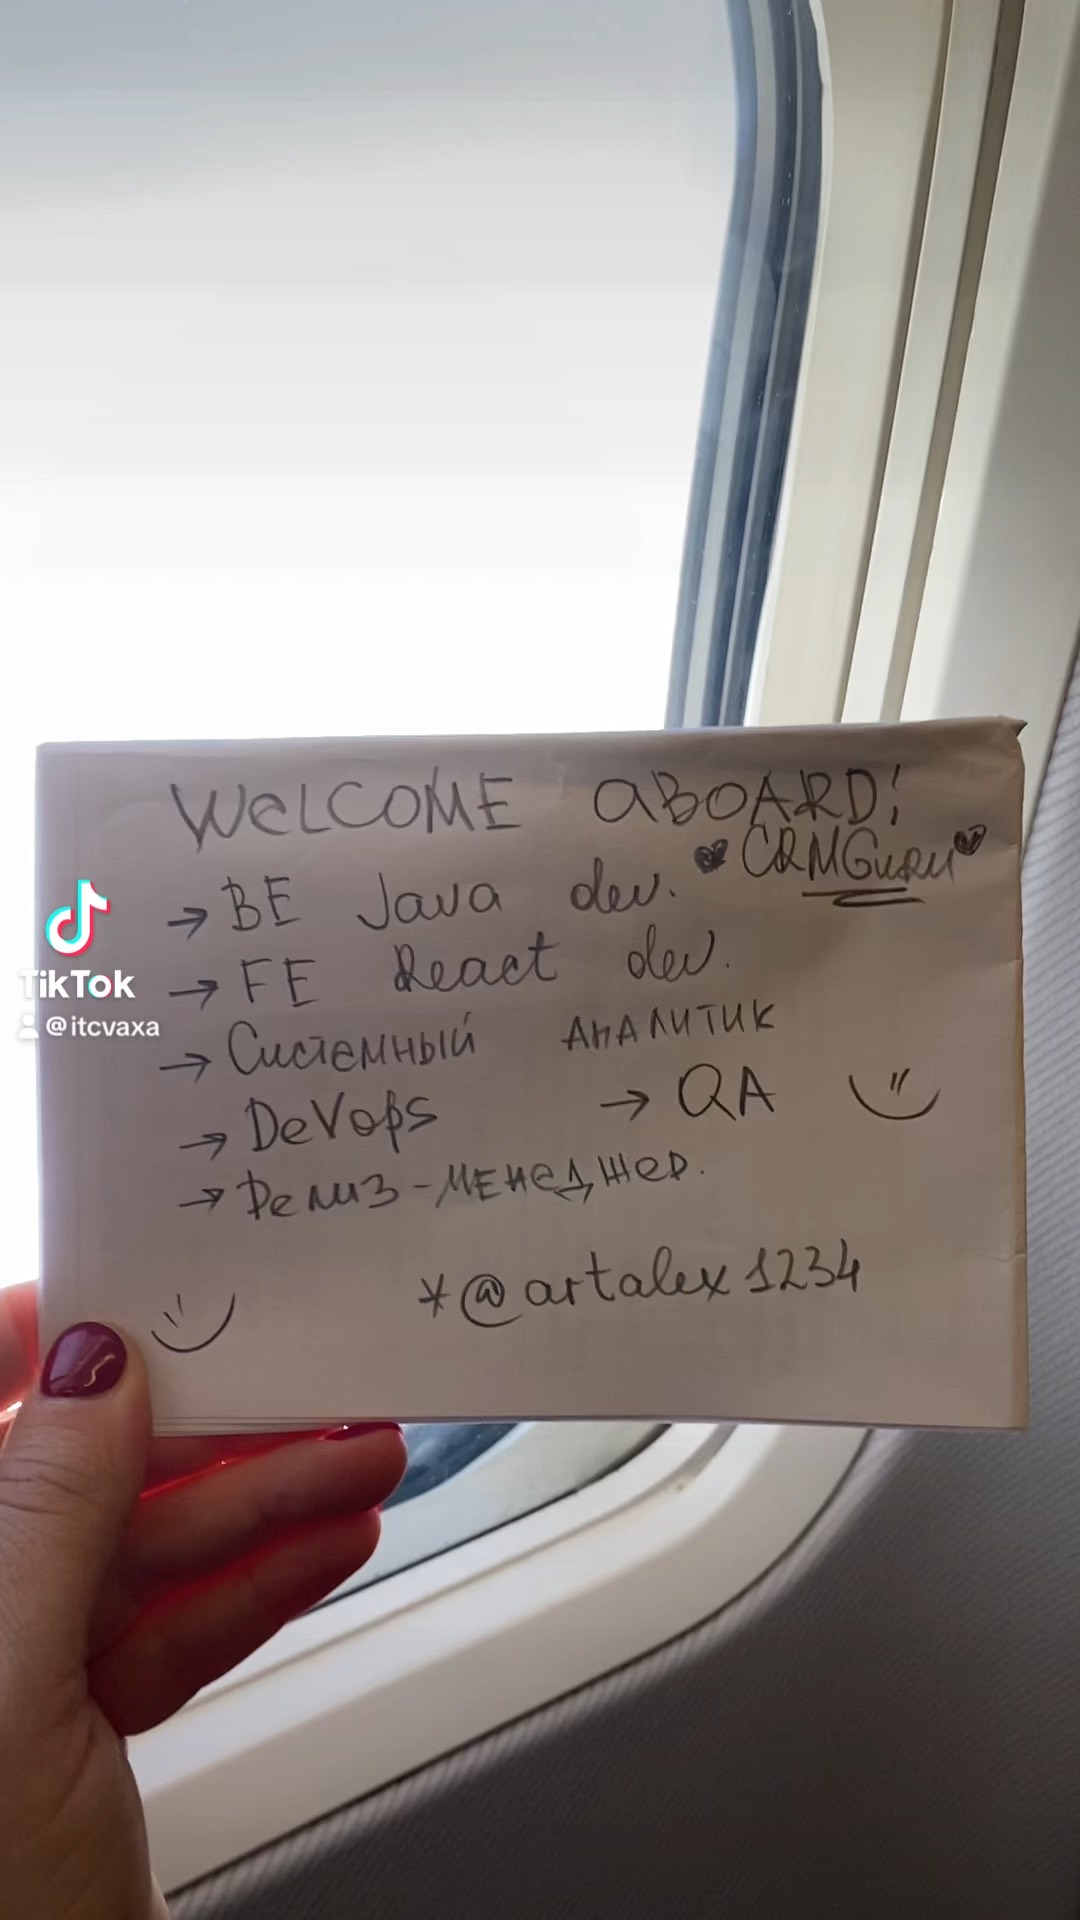 WELCOME ABOARD!
CRMGuru
→ BE Java dev.
→ FE React dev.
→ Системный аналитик
→ DevOps → QA
→ Релиз-менеджер.
*@artalex1234
TikTok
@itcvaxa